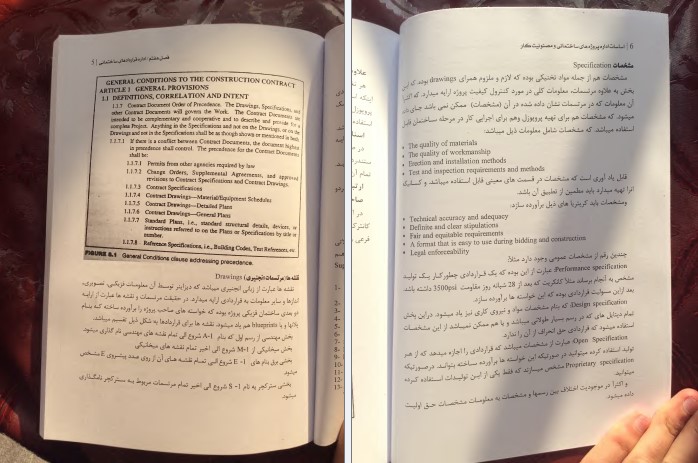 فصل هشتم - اداره قراردادهای ساختمانی | 5
GENERAL CONDITIONS TO THE CONSTRUCTION CONTRACT
ARTICLE 1 GENERAL PROVISIONS
1.1 DEFINITIONS, CORRELATION AND INTENT
1.1.7 Contract Document Order of Precedence. The Drawings, Specifications, and
other Contract Documents will govern the Work. The Contract Documents are
intended to be complementary and cooperative and to describe and provide for a
complete Project. Anything in the Specifications and not on the Drawings, or on the
Drawings and not in the Specifications shall be as though shown or mentioned in both.
1.1.7.1 If there is a conflict between Contract Documents, the document highest
in precedence shall control. The precedence for the Contract Documents
shall be:
1.1.7.1 Permits from other agencies required by law
1.1.7.2 Change Orders, Supplemental Agreements, and approved
revisions to Contract Specifications and Contract Drawings.
1.1.7.3 Contract Specifications
1.1.7.4 Contract Drawings—Material/Equipment Schedules
1.1.7.5 Contract Drawings—Detailed Plans
1.1.7.6 Contract Drawings—General Plans
1.1.7.7 Standard Plans, i.e., standard structural details, devices, or
instructions referred to on the Plans or Specifications by title or
number.
1.1.7.8 Reference Specifications, i.e., Building Codes, Test References, etc
FIGURE 8.1 General Conditions clause addressing precedence.
نقشه ها/مرتسمات (انجنیری) Drawings
نقشه ها عبارت از زبانی انجنیری میباشد که دیزاینر توسط آن معلومات فزیکی، تصویری،
اندازها و سایر معلومات به قراردادی ارایه میدارد. در حقیقت مرتسمات و نقشه ها عبارت از ارایه
دو بعدی ساختمان فزیکی پروژه بوده که خواسته های صاحب پروژه را برآورده ساخته که بنام
پلانها و یا blueprints هم یاد میشود. نقشه ها برای قراردادها به شکل ذیل تقسیم میباشد.
بخش مهندسی از رسم اول که بنام A-1 شروع الی تمام نقشه های مهندسی نام گذاری میشود
بخش میخانیکی از M-1 شروع الی اخیر تمام نقشه های میخانیکی
بخش برق بنام های E-1 شروع الی تمام نقشه های آن از روی عدد پیشروی E مشخص
میشود.
بخش سترکچر به نام S-1 شروع الی اخیر تمام مرتسمات مربوط به سترکچر نامگذاری
میشود.
6 | اساسات اداره پروژه های ساختمانی و مصئونیت کار
مشخصات Specification
مشخصات هم از جمله مواد تخنیکی بوده که لازم و ملزوم همرای drawings بوده که این
بخش به علاوه مرتسمات معلومات کلی در مورد کنترول کیفیت پروژه ارایه میدارد که اکثرا
آن معلومات که در مرتسمات نشان داده شده در آن (مشخصات) ممکن نمی باشد جای
میشود. که مشخصات هم برای تهیه پروپوزل وهم برای اجرایی کار در مرحله ساختمان قابل
استفاده میباشد. که مشخصات شامل معلومات ذیل میباشد:
• The quality of materials
• The quality of workmanship
• Erection and installation methods
• Test and inspection requirements and methods
قابل یاد آوری است که مشخصات در قسمت های معینی قابل استفاده میباشد، و کسانیکه
انرا تهیه میدارد باید مطمین از تطبیق آن باشد.
ومشخصات باید کریتریا های ذیل برآورده سازد.
• Technical accuracy and adequacy
• Definite and clear stipulations
• Fair and equitable requirements
• A format that is easy to use during bidding and construction
• Legal enforceability
چندین رقم از مشخصات عمومی وجود دارد مثلاً:
Performance specification: عبارت از این بوده که یک قراردادی چطور کار یک تولید
مشخص به انجام برساند مثلاً کانکریت که بعد از 28 شبانه روز مقاومت 3500psi داشته باشد.
بعد ازاین مسولیت قراردادی بوده که این خواسته ها برآورده سازد.
Design specification: که بنام مشخصات مواد و نیروی کاری نیز یاد میشود. دراین بخش
تمام دیتایل های که در رسم بسیار طولانی میباشد و یا هم ممکن نمیباشد از این مشخصات
استفاده میشود که قراردادی حق انحراف از آن را ندارد
Open Specification: عبارت از مشخصات میباشد که قراردادی را اجازه میدهد که از هر
تولید استفاده کرده میتوانید در صورتیکه این خواسته ها برآورده ساخته بتواند. درصورتیکه
Proprietary specification مشخص میسازند که فقط یکی از این تولیدات استفاده کرده
میتوانید
و اکثرا در موجودیت اختلاف بین رسمها و مشخصات به معلومات مشخصات حق اولیت
داده میشود.